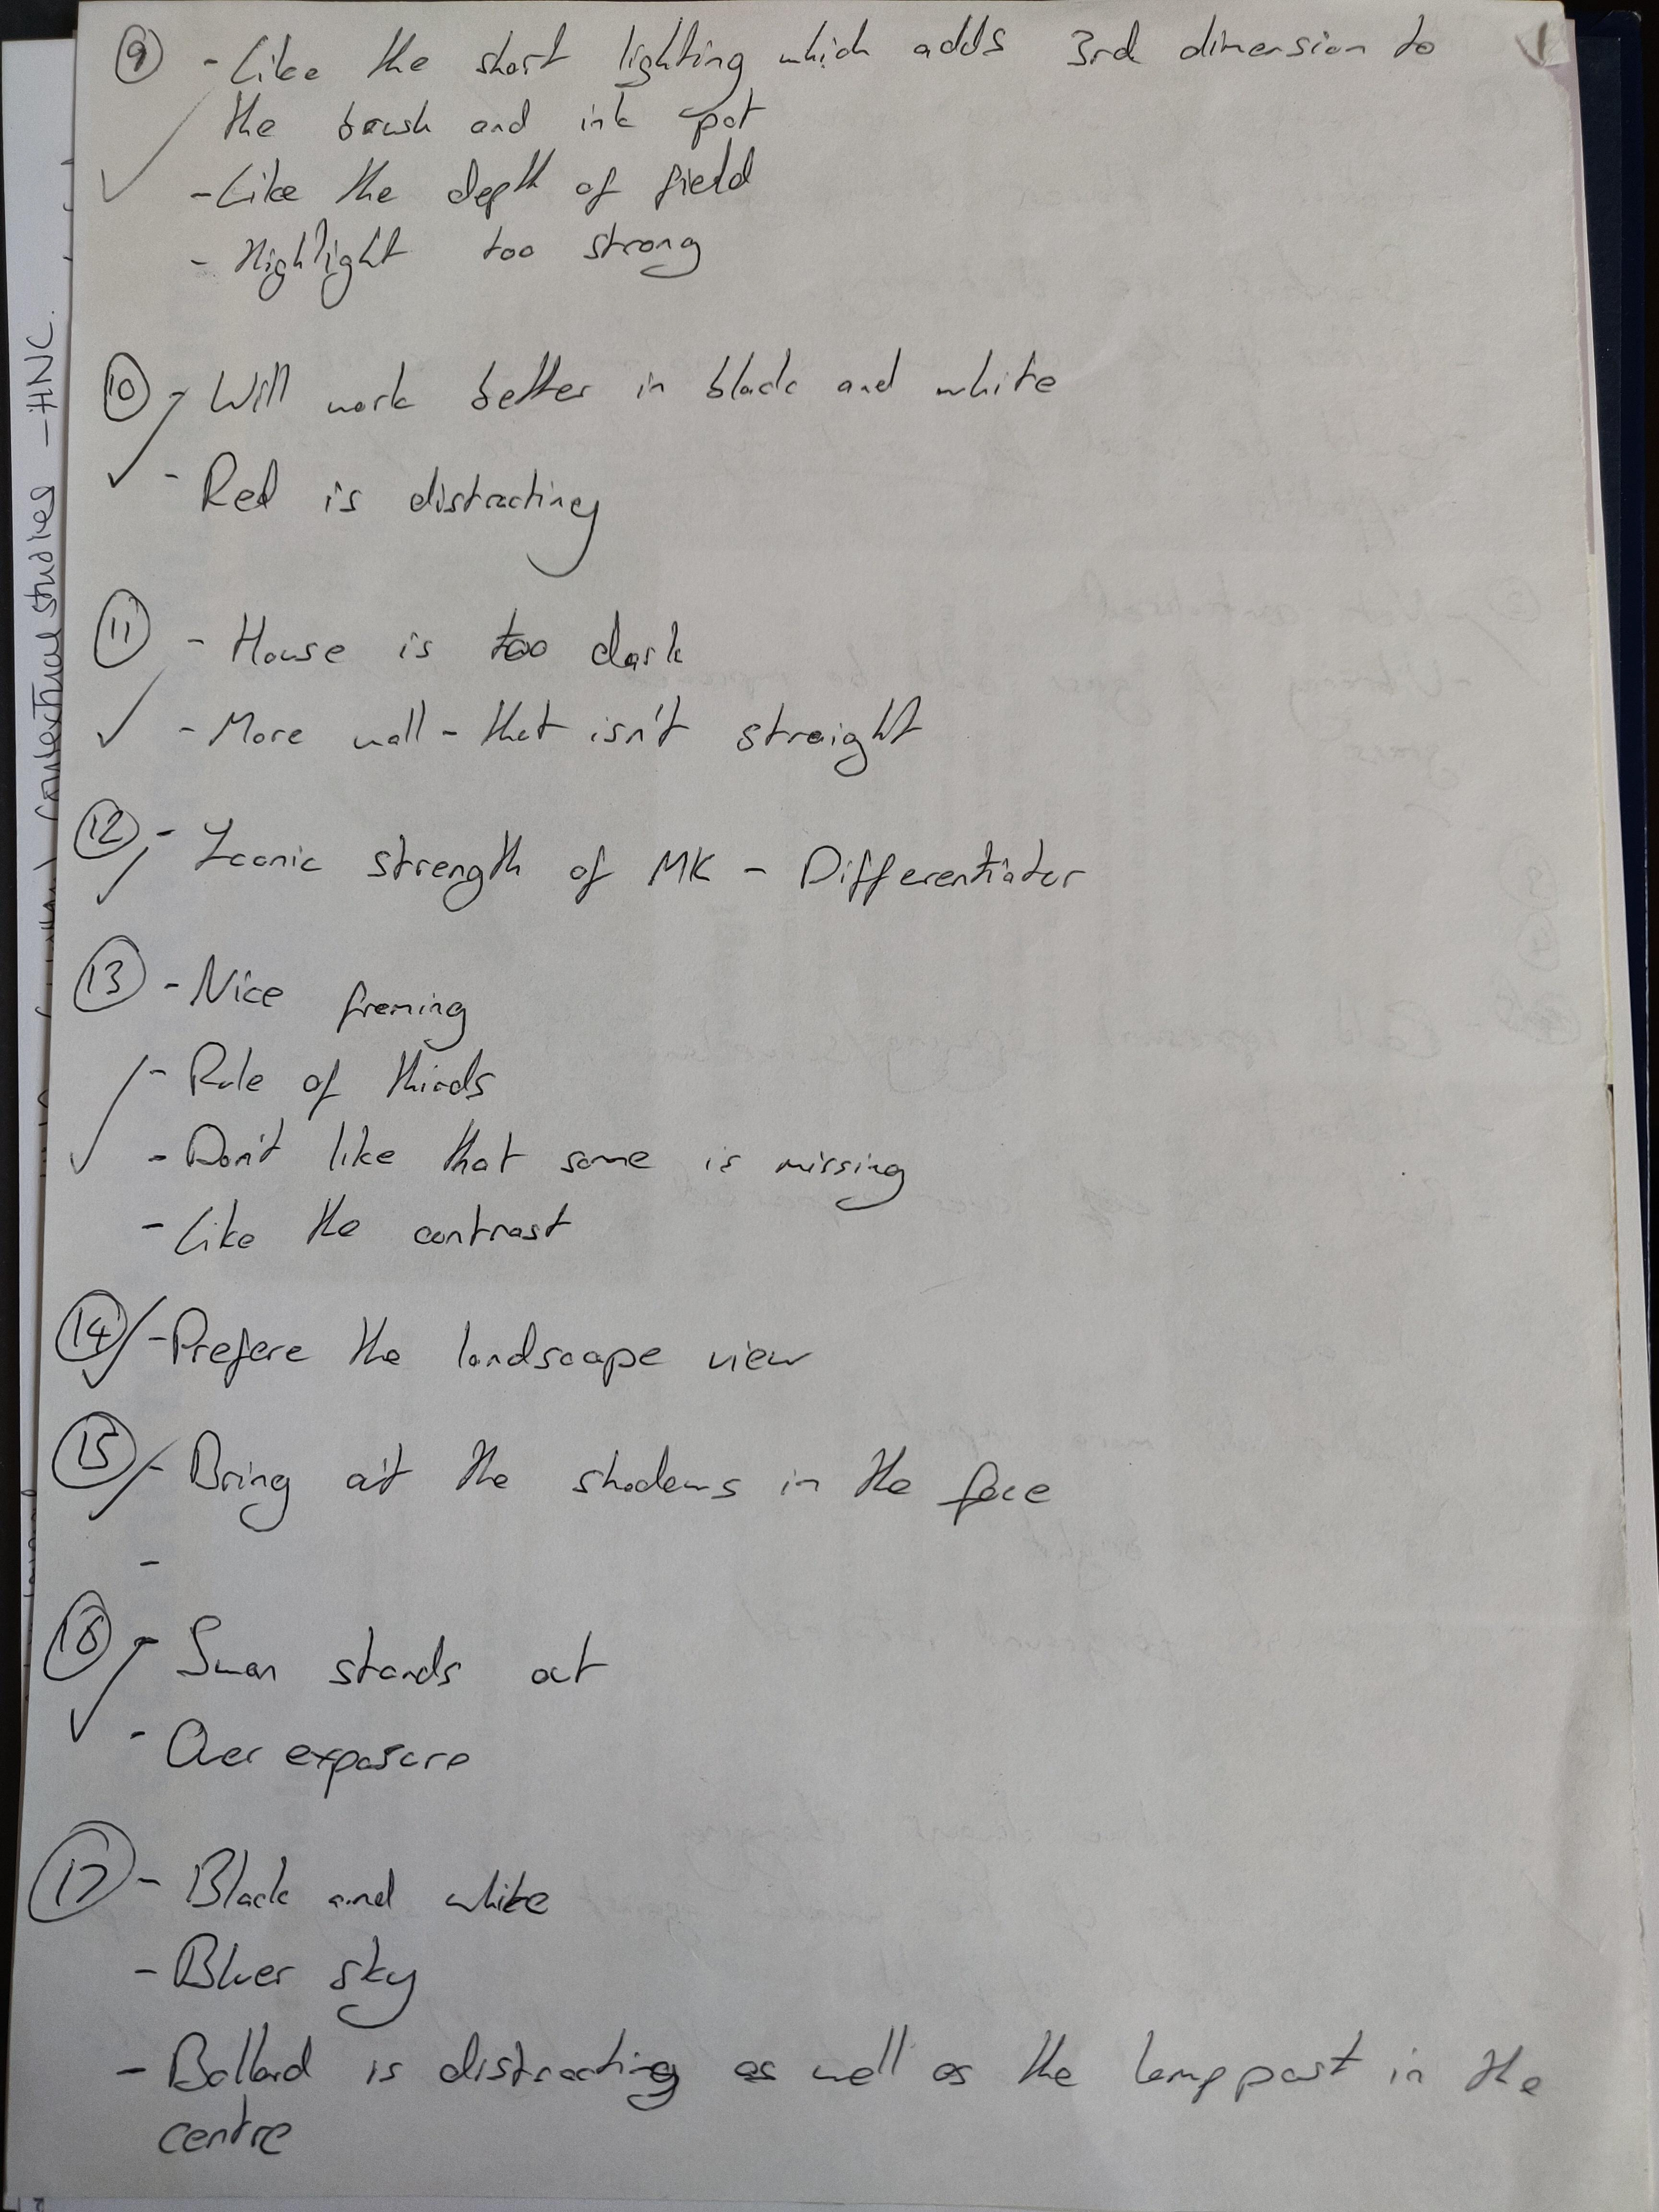 ⑨ - Like the short lighting which adds 3rd dimension to
the brush and ink pot
- Like the depth of field
- Highlight too strong
⑩ - Will work better in black and white
- Red is distracting
⑪ - House is too dark
- More wall - that isn't straight
⑫ - Iconic strength of MK - Differentiator
⑬ - Nice framing
- Rule of thirds
- Don't like that some is missing
- Like the contrast
⑭ - Prefere the landscape view
⑮ - Bring out the shadows in the face
-
⑯ - Swan stands out
- Over exposure
⑰ - Black and white
- Bluer sky
- Bollard is distracting as well as the lamp post in the
centre
contextual studies - HNC.